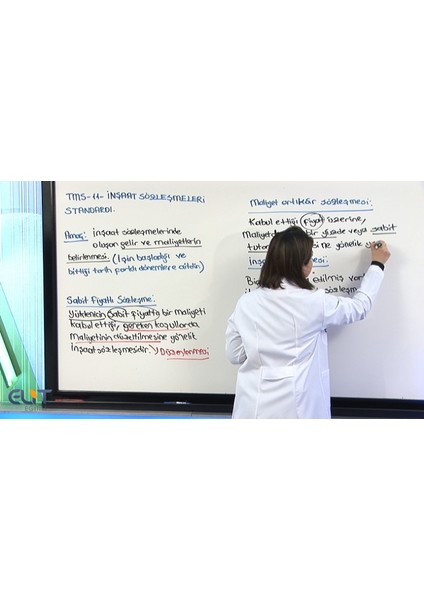 TMS-11- İNŞAAT SÖZLEŞMELERİ
STANDARDI.
Amaç: İnşaat sözleşmelerinde
oluşan gelir ve maliyetlerin
belirlenmesi. (İşin başladığı ve
bittiği tarih farklı dönemlere aittir)
Sabit Fiyatlı Sözleşme:
Yüklenicin sabit fiyatta bir maliyeti
kabul ettiği, gereken koşullarda
maliyetinin düzeltilmesine yönelik
inşaat sözleşmesidir.
Düzenlenmesi
Maliyet artıkâr sözleşmesi:
Kabul ettiği fiyat üzerine,
bir yüzde veya sabit
tutar ne yönelik
edilmiş
ELİT